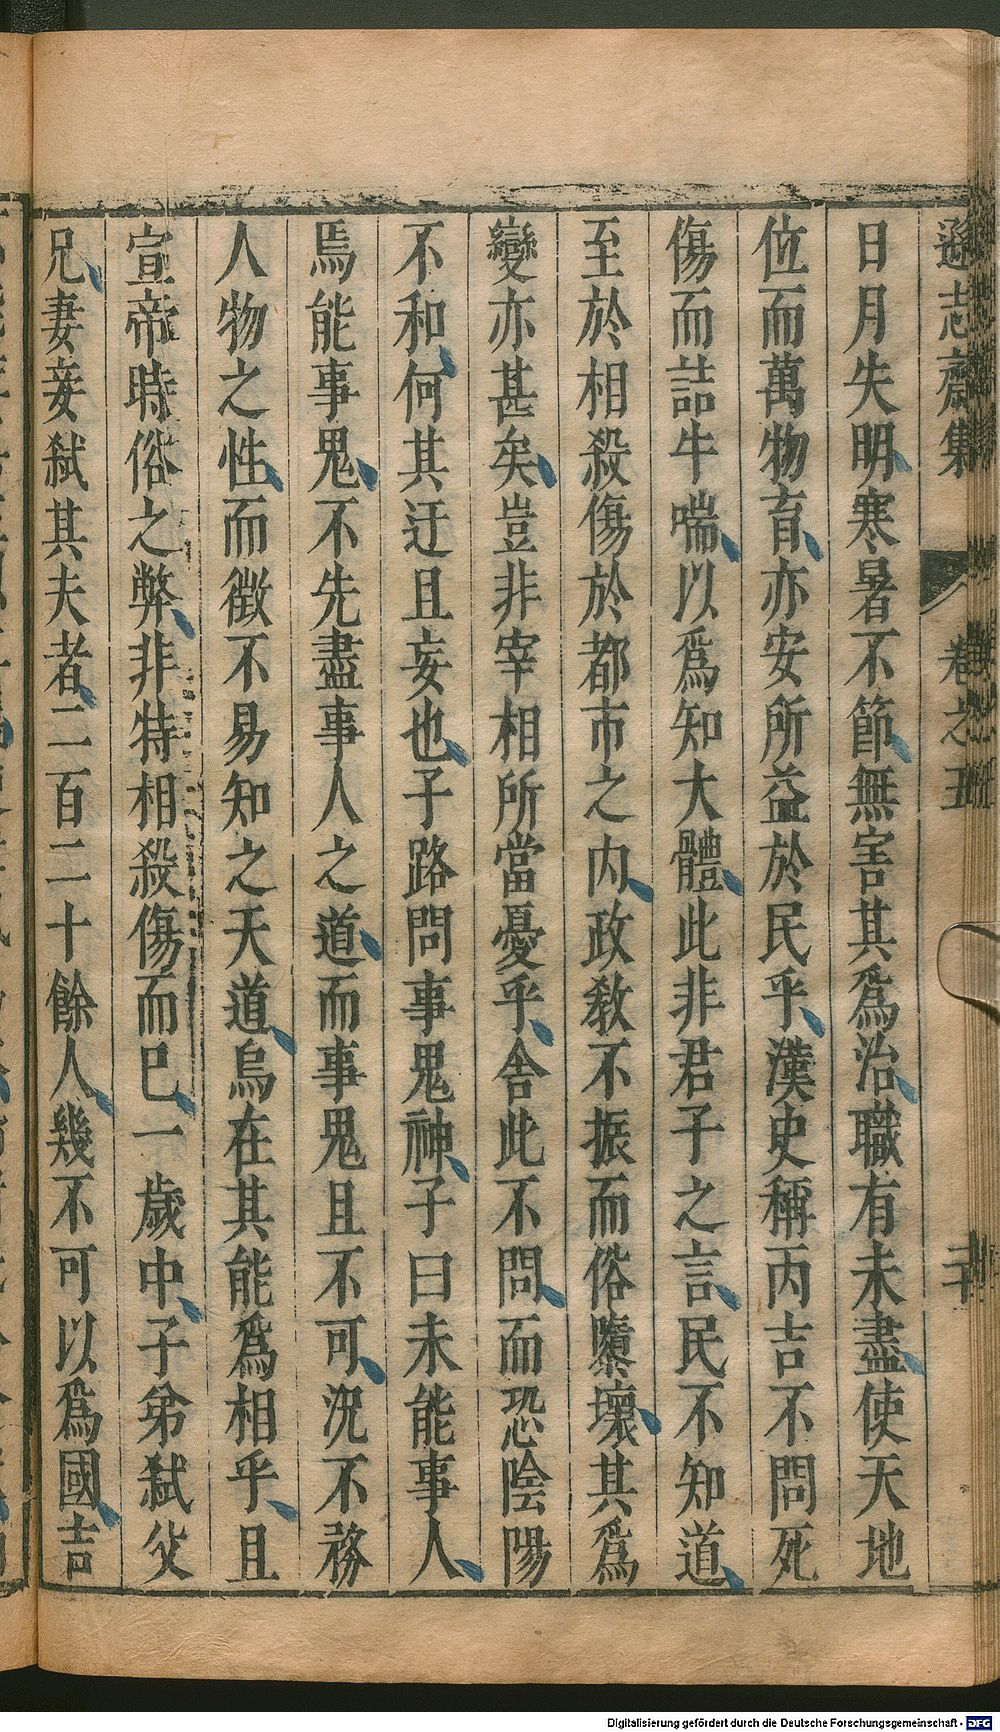 遜志齋集 卷之五 二十
日月失明寒暑不節無害其爲治職有未盡使天地
位而萬物育亦安所益於民乎漢史稱丙吉不問死
傷而詰牛喘以爲知大體此非君子之言民不知道
至於相殺傷於都市之内政教不振而俗隳壞其爲
變亦甚矣豈非宰相所當憂乎舍此不問而恐陰陽
不和何其迂且妄也子路問事鬼神子曰未能事人
焉能事鬼不先盡事人之道而事鬼且不可況不務
人物之性而徵不易知之天道烏在其能爲相乎且
宣帝時俗之弊非特相殺傷而已一歲中子弟弑父
兄妻妾弑其夫者二百二十餘人幾不可以爲國吉
Digitalisierung gefördert durch die Deutsche Forschungsgemeinschaft - DFG